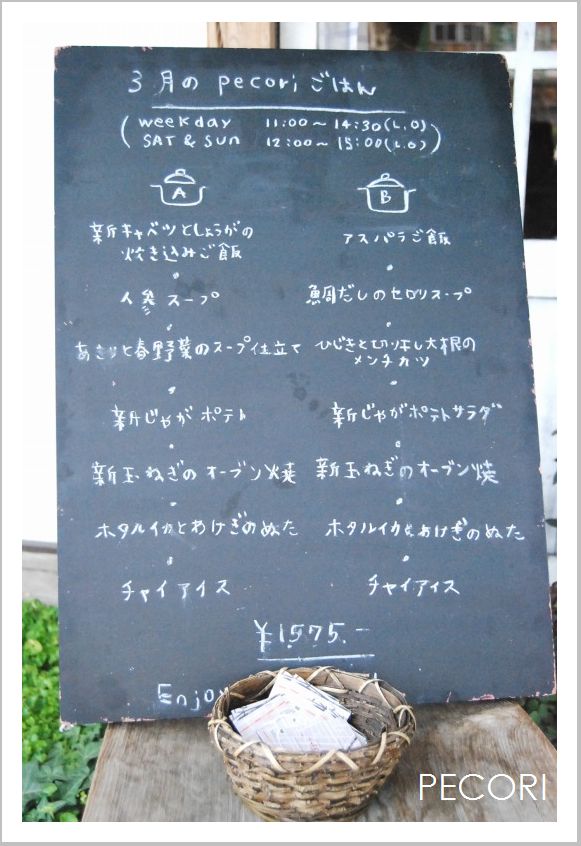 3月のpecoriごはん
(weekday 11:00~14:30(L.O)
SAT & SUN 12:00~15:00(L.O))
A
新キャベツとしょうがの
炊き込みご飯
人参スープ
あさりと春野菜のスープ仕立て
新じゃがポテト
新玉ねぎのオーブン焼
ホタルイカとわけぎのぬた
チャイアイス
B
アスパラご飯
鯛だしのセロリスープ
ひじきと切り干し大根の
メンチカツ
新じゃがポテトサラダ
新玉ねぎのオーブン焼
ホタルイカとわけぎのぬた
チャイアイス
¥1575.-
Enjoy
PECORI